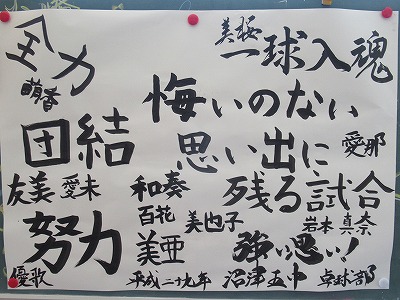 全力
萌香
美桜
一球入魂
団結
悔いのない
思い出に
残る試合
愛那
友美
愛未
和奏
百花
美也子
岩本真奈
努力
美亜
強い思い!
優歌
平成二十九年
沼津五中
卓球部